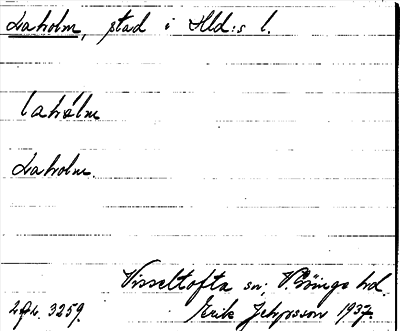 Laholm, stad i Hld:s l.
lahòlm
Laholm.
Visseltofta sn, V. Göinge hd.
Erik Jeppsson 1937.
3259.